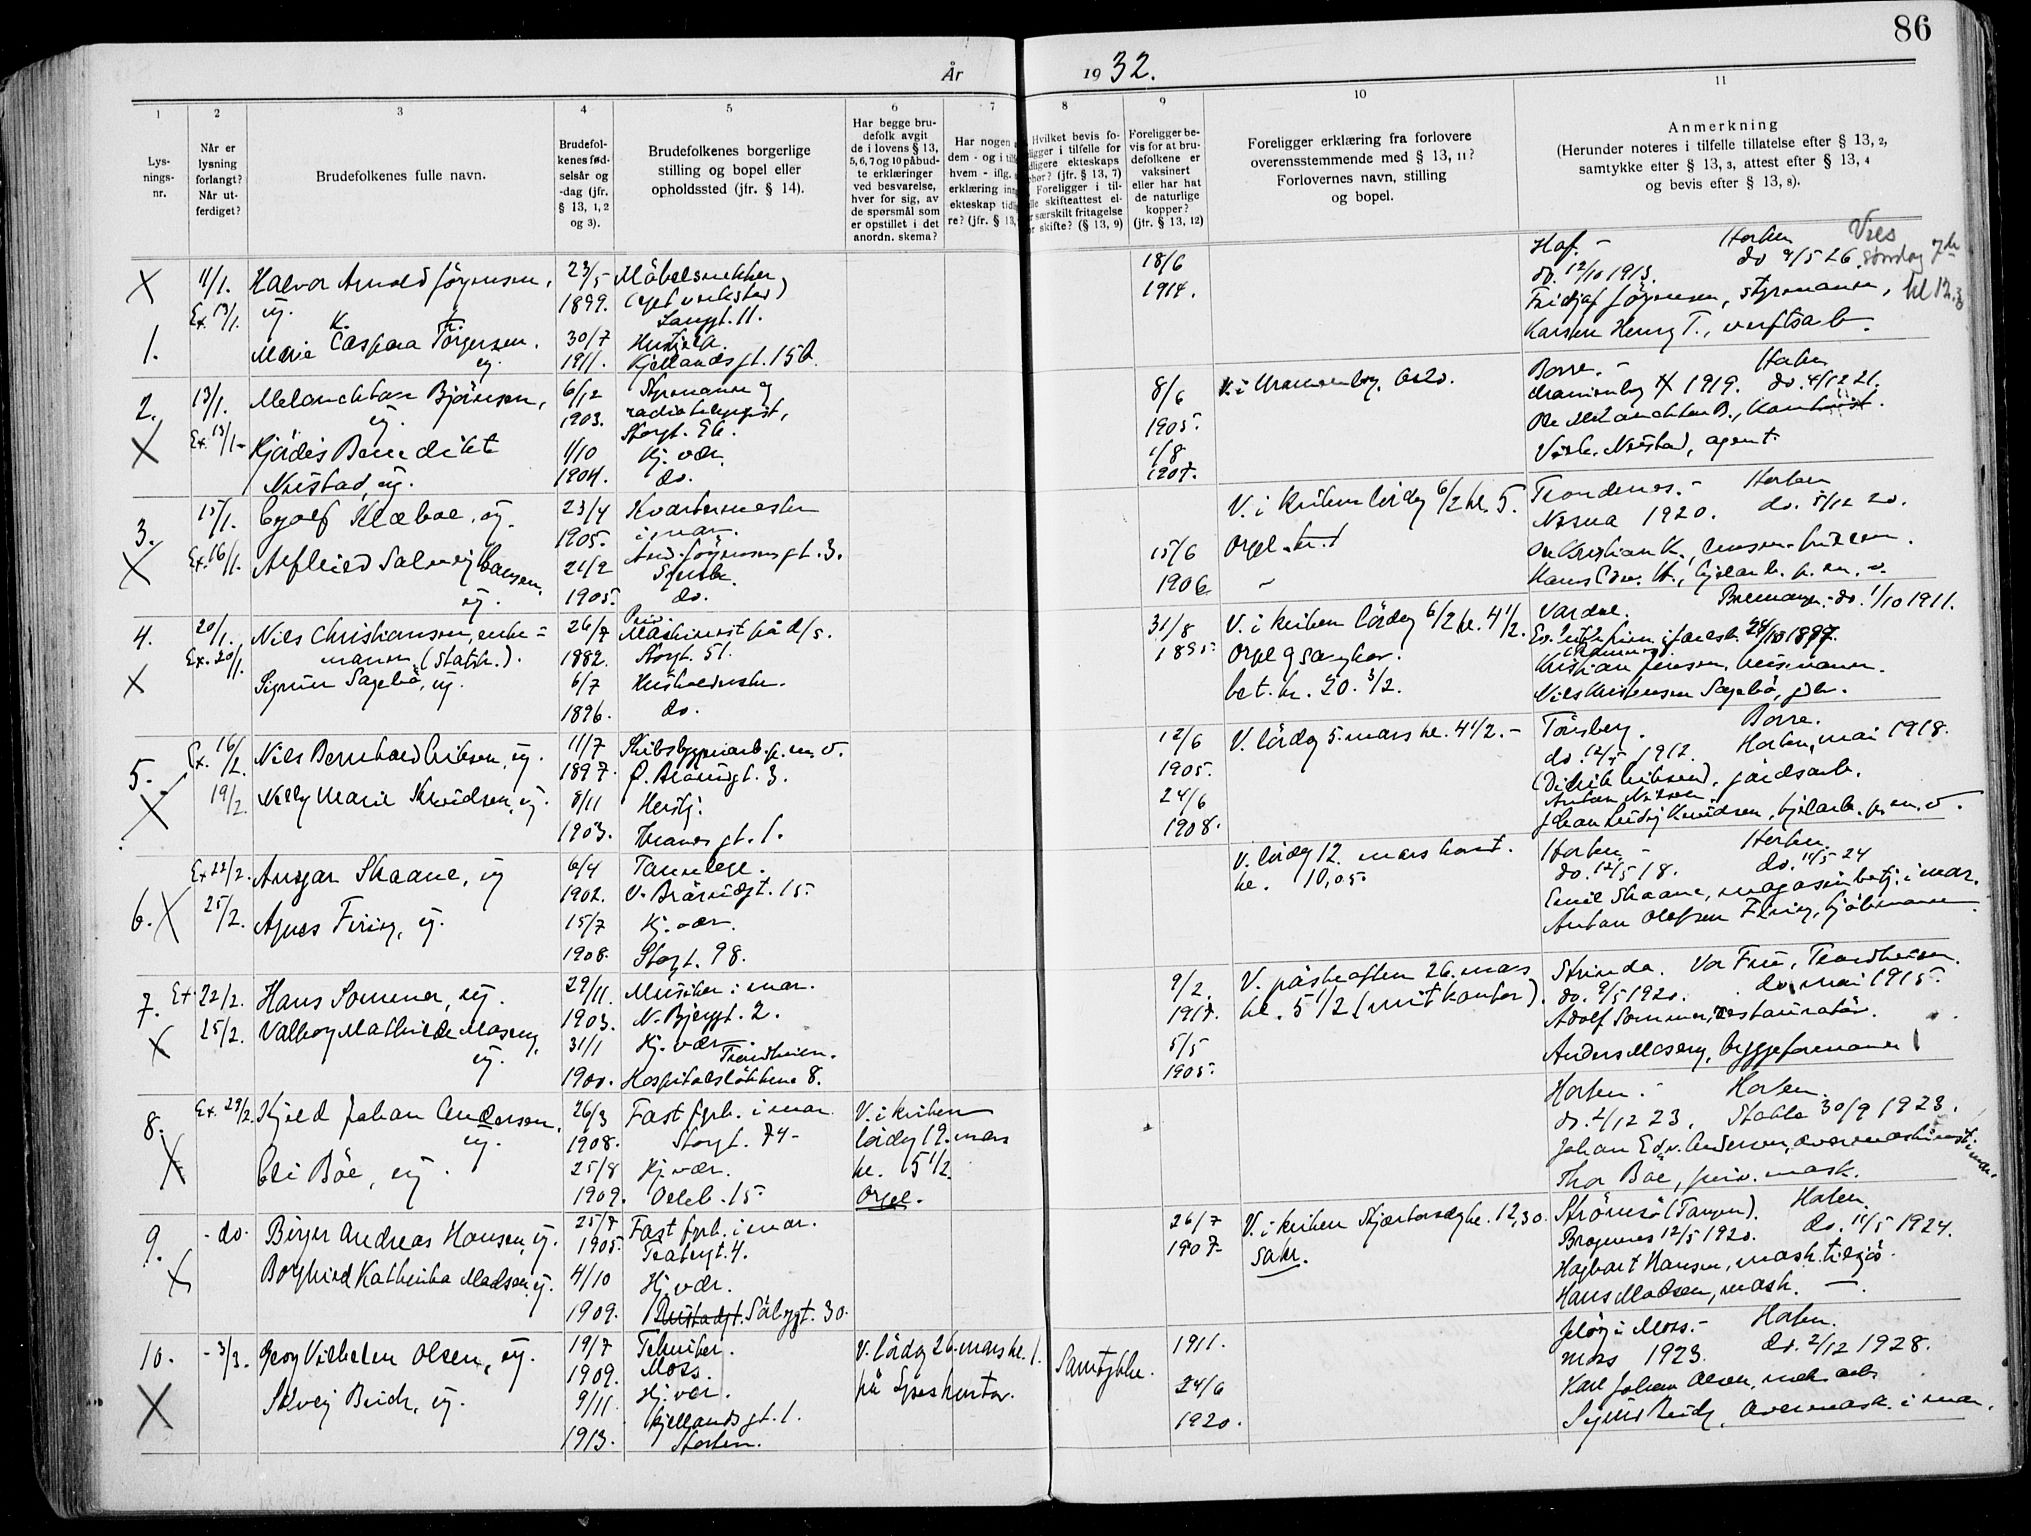 86
År 1932.
1
2
3
4
5
6
7
8
9
10
11
Lys-
nings-
nr.
Når er
lysning
forlangt?
Når ut-
ferdiget?
Brudefolkenes fulle navn.
Brudefol-
kenes fød-
selsår og
-dag (jfr.
§ 13, 1, 2
og 3).
Brudefolkenes borgerlige
stilling og bopel eller
opholdssted (jfr. § 14).
Har begge bru-
defolk avgit
de i lovens § 13,
5, 6, 7 og 10 påbud-
te erklæringer
ved besvarelse,
hver for sig, av
de spørsmål som
er opstillet i det
anordn. skema?
Har nogen
dem - og i
hvem - iflg.
erklæring
ekteskap
re? (jfr. § 13,
Hvilket bevis fo-
religger i tilfelle for
tidligere ekteskaps
ophør? (jfr. § 13, 7)
Foreligger i til-
felle skifteattest el-
særskilt fritagelse
for skifte? (§ 13, 9)
Foreligger be-
vis for at bru-
defolkene er
vaksinert
eller har hat
de naturlige
kopper?
(jfr. § 13, 12)
Foreligger erklæring fra forlovere
overensstemmende med § 13, 11?
Forlovernes navn, stilling
og bopel.
Anmerkning
(Herunder noteres i tilfelle tillatelse efter § 13, 2,
samtykke efter § 13, 3, attest efter § 13, 4
og bevis efter § 13, 8).
X
1.
11/1.
Ex. 13/1.
Halvor Arnold Jörgensen,
ug.
Marie K. Caspara Törgersen,
ug.
23/5
1899.
30/7
1911.
Möbelsnekker
(eget verksted)
Langt. 11.
Kjellandsgt. 15 b.
18/6
1914.
Hof. - Horten
do. 12/10 1913. do 9/5 26.
Vies
søndag 7de
kl 12.30
Fridtjof Jörgensen, styrmann,
Karsten Henry T., verftsarb.
2.
X
13/1.
Ex. 13/1-
Melanchton Björnsen,
ug.
Hjördis Benedikte
Nristad, ug.
6/12
1903.
1/10
1904.
Styrmann og
radiotelegrafist,
Storgt. 56.
Hj. vær.
do.
8/6
1905.
1/8
1907.
V. i Uranienborg, Oslo.
Borre. - Horten
Uranienborg 1919. do. 4/12 21.
agent.
3.
X
15/1.
Ex. 16/1.
Eyolf Klæboe, ug.
Alfhild Solveig
ug.
23/4
1905.
21/2
1905.
Kvartermester
i mar.
Syerske.
do.
15/6
1906
V. i kirken lördag 6/2 kl. 5.
Orgel
Trondenes. - Horten
1920. do. 5/12 20.
4.
X
20/1.
Ex. 20/1.
Nils Christiansen, enke-
mann (Statsk.).
Sigrun Sagebö, ug.
26/7
1882.
6/7
1896.
Maskinist på d/s.
Storgt. 51.
Husholderske.
do.
31/8
1895
V. i kirken lördag 6/2 kl. 4 1/2.
Orgel og sangkor.
bet. kr. 20. 3/2.
Bremanger. - do. 1/10 1911.
Kristian Jensen, husmann.
Nils Kristensen Sagebö,
5.
X
Ex. 16/2.
19/2
Nils Bernhard Eriksen, ug.
Nelly Marie Knudsen, ug.
11/7
1897.
8/11
1903.
Skibsbyggerarb. p. m. v.
Ö. Braarudgt. 3.
Husj.
Thranesgt. 1.
12/6
1905.
24/6
1908.
V. lördag 5. mars kl. 4 1/2. -
Tönsberg. Borre.
do. 12/5 1912. Horten, mai 1918.
(Didrik Eriksen), gårdsarb.
Johan Ludvig Knudsen, hjelparb. p. m. v.
6.
X
Ex 22/2.
25/2.
Ansgar Skaane, ug
Agnes Firing, ug.
6/4
1902.
15/7
1908.
Tannlege.
V. Braarudgt. 15.
Hj. vær.
Storgt. 98.
V. lördag 12. mars
kl. 10,05.
Horten - Horten.
do. 12/5 18. do. 11/5 24
Emil Skaane, magasinbetj. i mar.
Anton Olafsen Firing,
7.
X
Ex 22/2.
25/2.
Hans Sommer, ug.
Valborg Mathilde Moseng,
ug.
29/11
1903.
31/1
1900.
Musiker i mar.
N. Bjergt. 2.
Hj. vær.
Trondheim.
Hospitalslökkene 8.
9/2
1917.
5/5
1905.
V. påskeaften 26. mars
kl. 5 1/2 (mitt kontor).
Strinda. Vor Frue, Trondheim.
do. 9/5 1920. do. mai 1915.
Adolf Sommer, restauratör.
Anders Moseng, byggeformann
8.
X
Ex. 29/2.
Kjeld Johan Andersen,
ug.
Eli Böe, ug.
26/3
1908.
25/8
1909.
Fast fyrb. i mar.
Storgt. 74-
Hj. vær.
Oscelb. 15.
V. i kirken
lördag 19. mars
kl. 5 1/2.
Orgel.
Horten. - Horten.
do. 2/12 23. Stokke 30/9 1923.
Johan Edv. Andersen, overmaskinist i mar.
Thor Böe, mask.
9.
X
- do -
Birger Andreas Hansen, ug.
Borghild Kathinka Madsen, ug.
25/7
1905.
4/10
1909.
Fast fyrb. i mar.
Teatergt. 4.
Hj. vær.
Rustadgt. Sölvgt. 30.
26/7
1907
V. i kirken Skjærtorsdag kl. 12,30
Sakr.
Strömsö (Tangen). Horten
Bragernes 12/5 1920. do. 11/5 1924.
Hagbart Hansen, mask. tilsjös.
Hans Madsen, mask. —
10.
X
- 3/3.
Georg Vilhelm Olsen, ug.
Solveig Buch, ug.
19/7
1909.
9/11
1913.
Tekniker.
Moss.
Hj. vær.
Kjellandsgt. 1.
Horten.
V. lördag 26. mars kl. 1.
på Speskontor.
Samtykke.
1911.
24/6
1920.
Jelöy i Moss. - Horten.
Moss 1923. do. 2/12 1928.
Karl Johan Olsen, mek. arb
overmask. i mar.